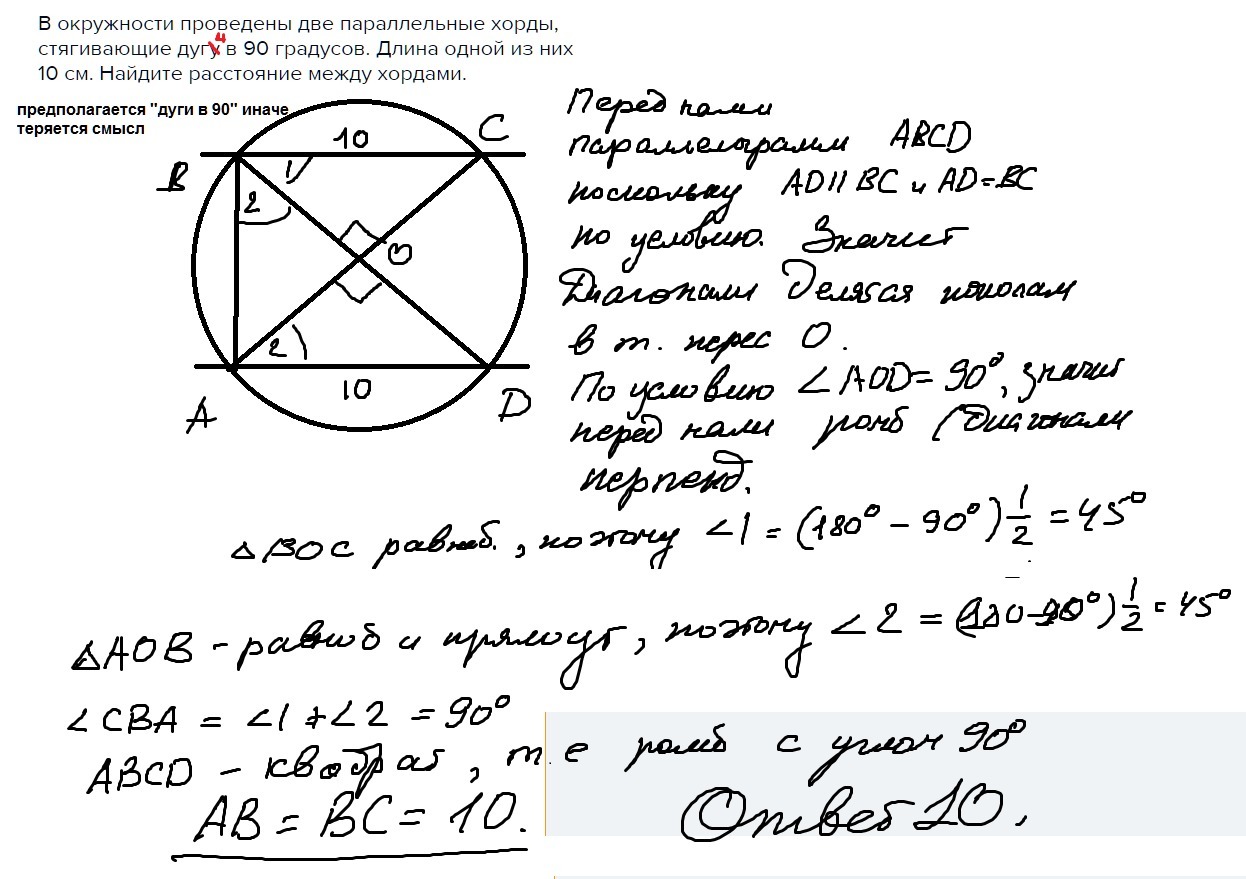 В окружности проведены две параллельные хорды,
стягивающие дуги в 90 градусов. Длина одной из них
10 см. Найдите расстояние между хордами.
предполагается "дуги в 90" иначе
теряется смысл
10
C
B
1
2
O
2
10
A
D
Перед нами
параллелограмм ABCD
поскольку AD || BC и AD=BC
по условию. Значит
Диагонали делятся пополам
в т. перес O.
По условию ∠AOD = 90°, значит
перед нами ромб (Диагонали
перпенд.
△BOC равноб., поэтому ∠1 = (180° - 90°) 1/2 = 45°
△AOB - равноб и прямоуг, поэтому ∠2 = (180-90°) 1/2 = 45°
∠CBA = ∠1 + ∠2 = 90°
ABCD - квадрат, т.е ромб с углом 90°
AB = BC = 10.
Ответ 10.